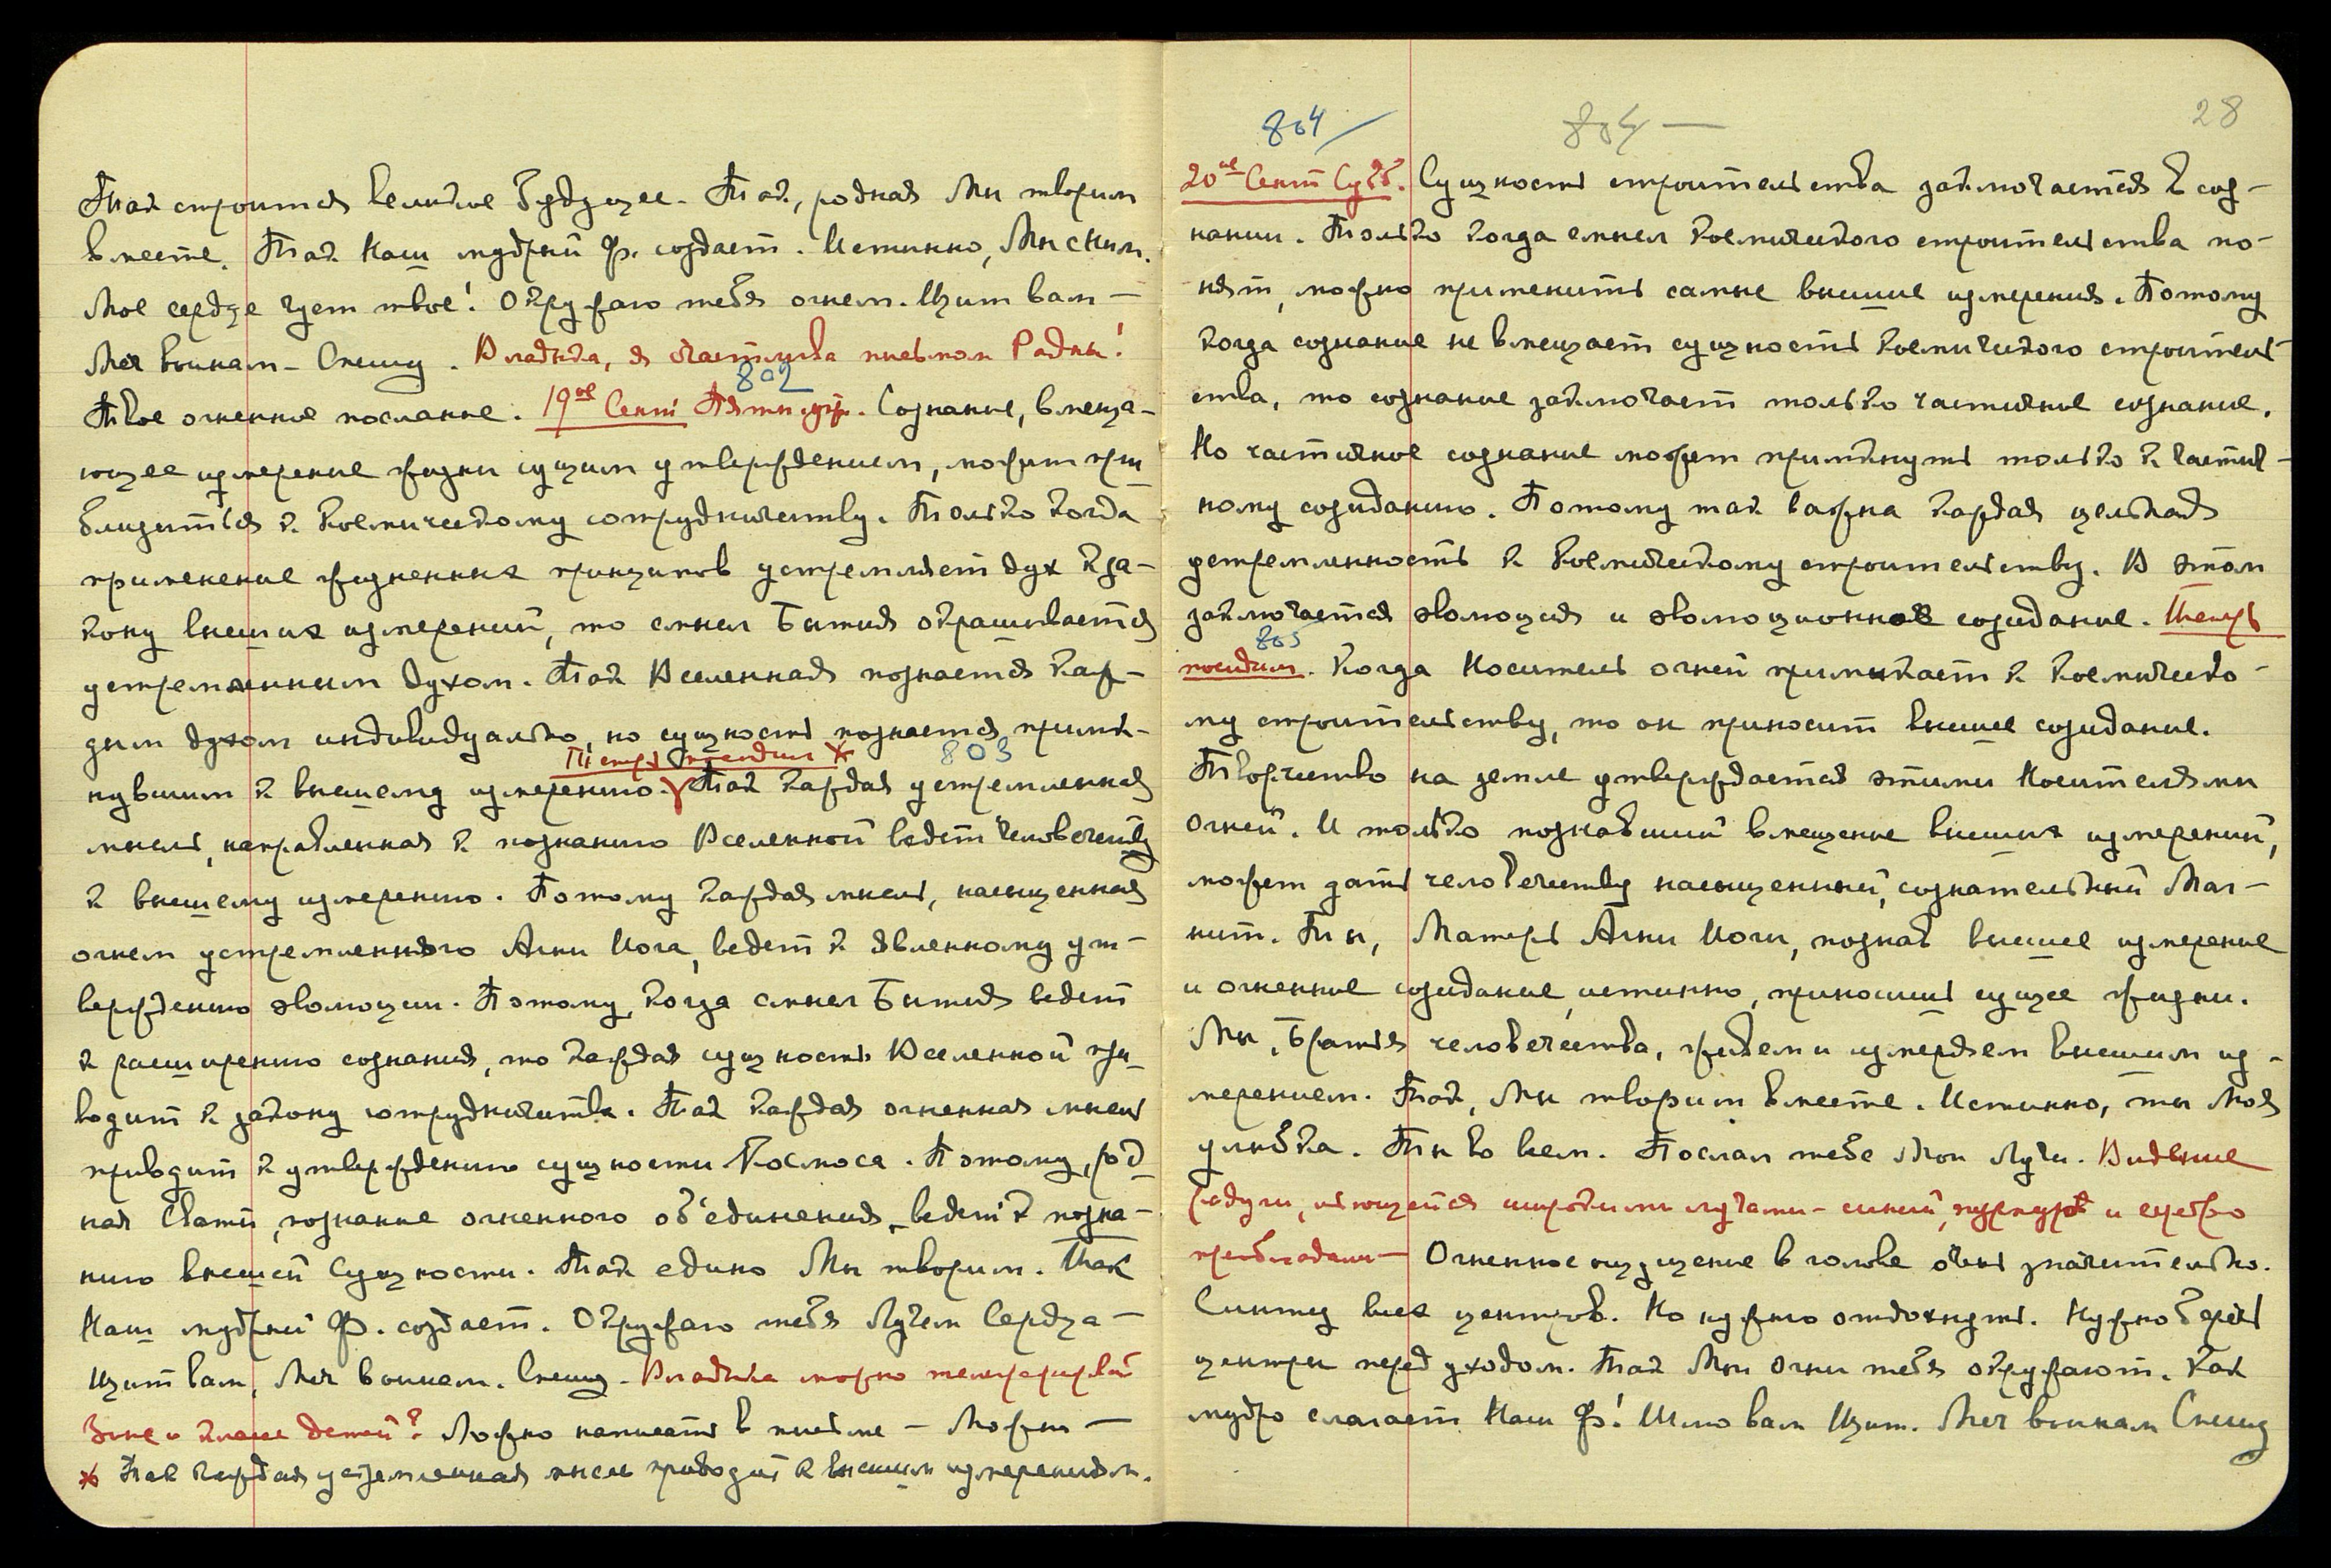 Так строится великое Будущее. Так, родная Мы творим
вместе. Так Наш мудрый Ф. создает. Истинно, Мы с Ним.
Мое сердце чует твое! Окружаю тебя огнем. Щит вам —
Меч воинам — Спешу. Владыка, я счастлива письмом Радны!
802
Твое огненное послание. 19ое Сент Пятница. Сознание, вмеща-
ющее измерение жизни сущим утверждением, может при
близиться к космическому сотрудничеству. Только когда
применение жизненных принципов устремляет дух к за-
кону высших измерений, то смысл Бытия окрашивается
устремленным духом. Так Вселенная познается каж-
дым духом индивидуально, но сущность познается примк-
Теперь посидим ж 803
нувшим к высшему измерению. Так каждая устремленная
мысль, направленная к познанию Вселенной ведет человечеству
к высшему измерению. Потому каждая мысль, насыщенная
огнем устремленного Агни Йога, ведет к явленному ут-
верждению эволюции. Потому, когда смысл Бытия ведет
к расширению сознания, то каждая сущность Вселенной при
водит к закону сотрудничества. Так каждая огненная мысль
приводит к утверждению сущности Космоса. Потому, род
ная Свати, познание огненного об'единения, ведет к позна-
нию высшей Сущности. Так едино Мы творим. Так
Наш мудрый Ф. создает. Окружаю тебя Лучем Сердца —
Щит вам, Меч воинам. Спешу. Владыка можно
Можно написать в письме — Можно —
ж Так каждая устремленная мысль приводит к высшим измерениям.
28
804 804 —
20ое Сент Субб. Сущность строительства заключается в соз-
нании. Только когда смысл космического строительства по-
нят, можно применить самые высшие измерения. Потому
когда сознание не вмещает сущность космического строитель-
ства, то сознание заключает только частичное сознание.
Но частичное сознание может примкнуть только к частич-
ному созиданию. Потому так важна каждая цельная
устремленность к космическому строительству. В этом
заключается эволюция и эволюционное созидание. Теперь
805
посидим. Когда Носитель огней примыкает к космическо-
му строительству, то он приносит высшее созидание.
Творчество на земле утверждается этими Носителями
Огней. И только познавший вмещение высших измерений,
может дать человечеству насыщенный, сознательный Маг-
нит. Ты, Матерь Агни Йоги, познав высшее измерение
и огненное созидание, истинно, приносишь сущее жизни.
Мы, Братья человечества, живем и измеряем высшим из-
мерением. Так, Мы творим вместе. Истинно, ты Моя
улыбка. Ты во всем. Послал тебе Мои Лучи. Видение
радуги, широкими лучами — синий, пурпур и серебро
преобладали — Огненное ощущение в голове очень значительно.
Синтез всех центров. Но нужно отдохнуть. Нужно беречь
центры перед уходом. Так Мои Огни тебя окружают. Как
мудро слагает Наш Ф! Шлю вам Щит. Меч воинам Спешу